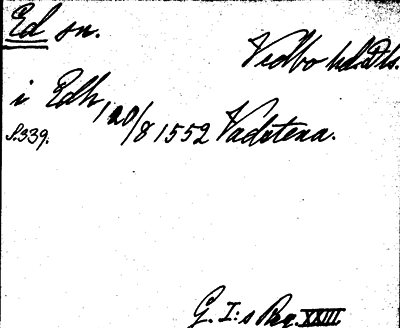 Ed sn.
Vedbo hd. Dls.
i Edh, 20/8 1552 Vadstena.
S. 339.
G. I:s Reg. XXIII.